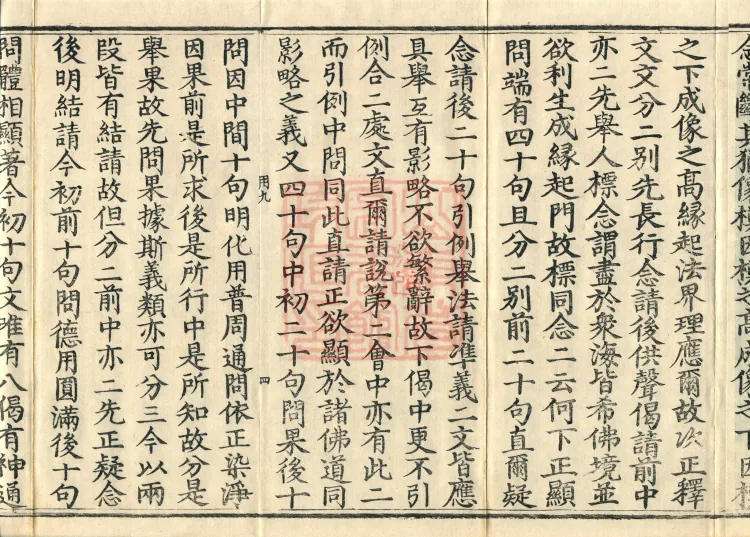 之下成像之高縁起法界理應爾故次正釋
文文分二別先長行念請後供聲偈請前中
亦二先舉人標念謂盡於衆海皆希佛境並
欲利生成縁起門故標同念二云何下正顯
問端有四十句且分二別前二十句直爾疑
念請後二十句引例舉法請準義二文皆應
具舉互有影略不欲繁辭故下偈中更不引
例合二處文直爾請說第二會中亦有此二
而引例中問同此直請正欲顯於諸佛道同
影略之義又四十句中初二十句問果後十
用九
四
問因中間十句明化用普周通問依正染淨
因果前是所求後是所行中是所知故分是
舉果故先問果據斯義類亦可分三今以兩
段皆有結請故但分二前中亦二先正疑念
後明結請今初前十句問德用圓滿後十句
問體相顯著今初十句文唯有八偈有神通